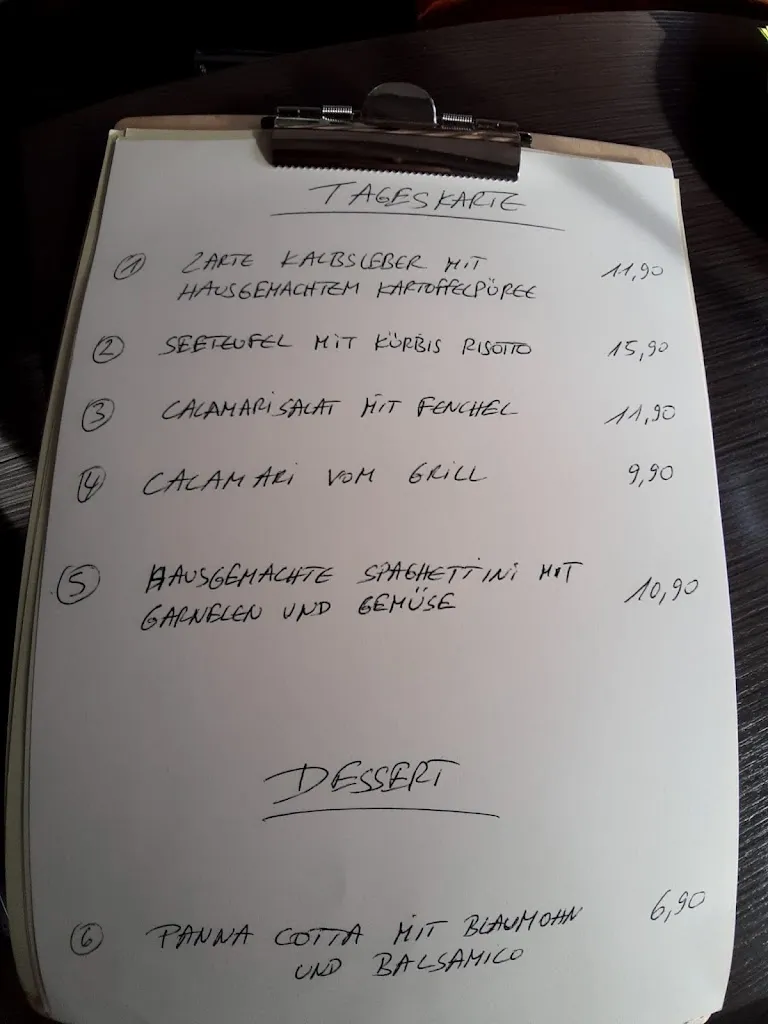 TAGESKARTE
1 ZARTE KALBSLEBER MIT 11,90
HAUSGEMACHTEM KARTOFFELPÜREE
2 SEETEUFEL MIT KÜRBIS RISOTTO 15,90
3 CALAMARISALAT MIT FENCHEL 11,90
4 CALAMARI VOM GRILL 9,90
5 HAUSGEMACHTE SPAGHETTINI MIT 10,90
GARNELEN UND GEMÜSE
DESSERT
6 PANNA COTTA MIT BLAUMOHN 6,90
UND BALSAMICO